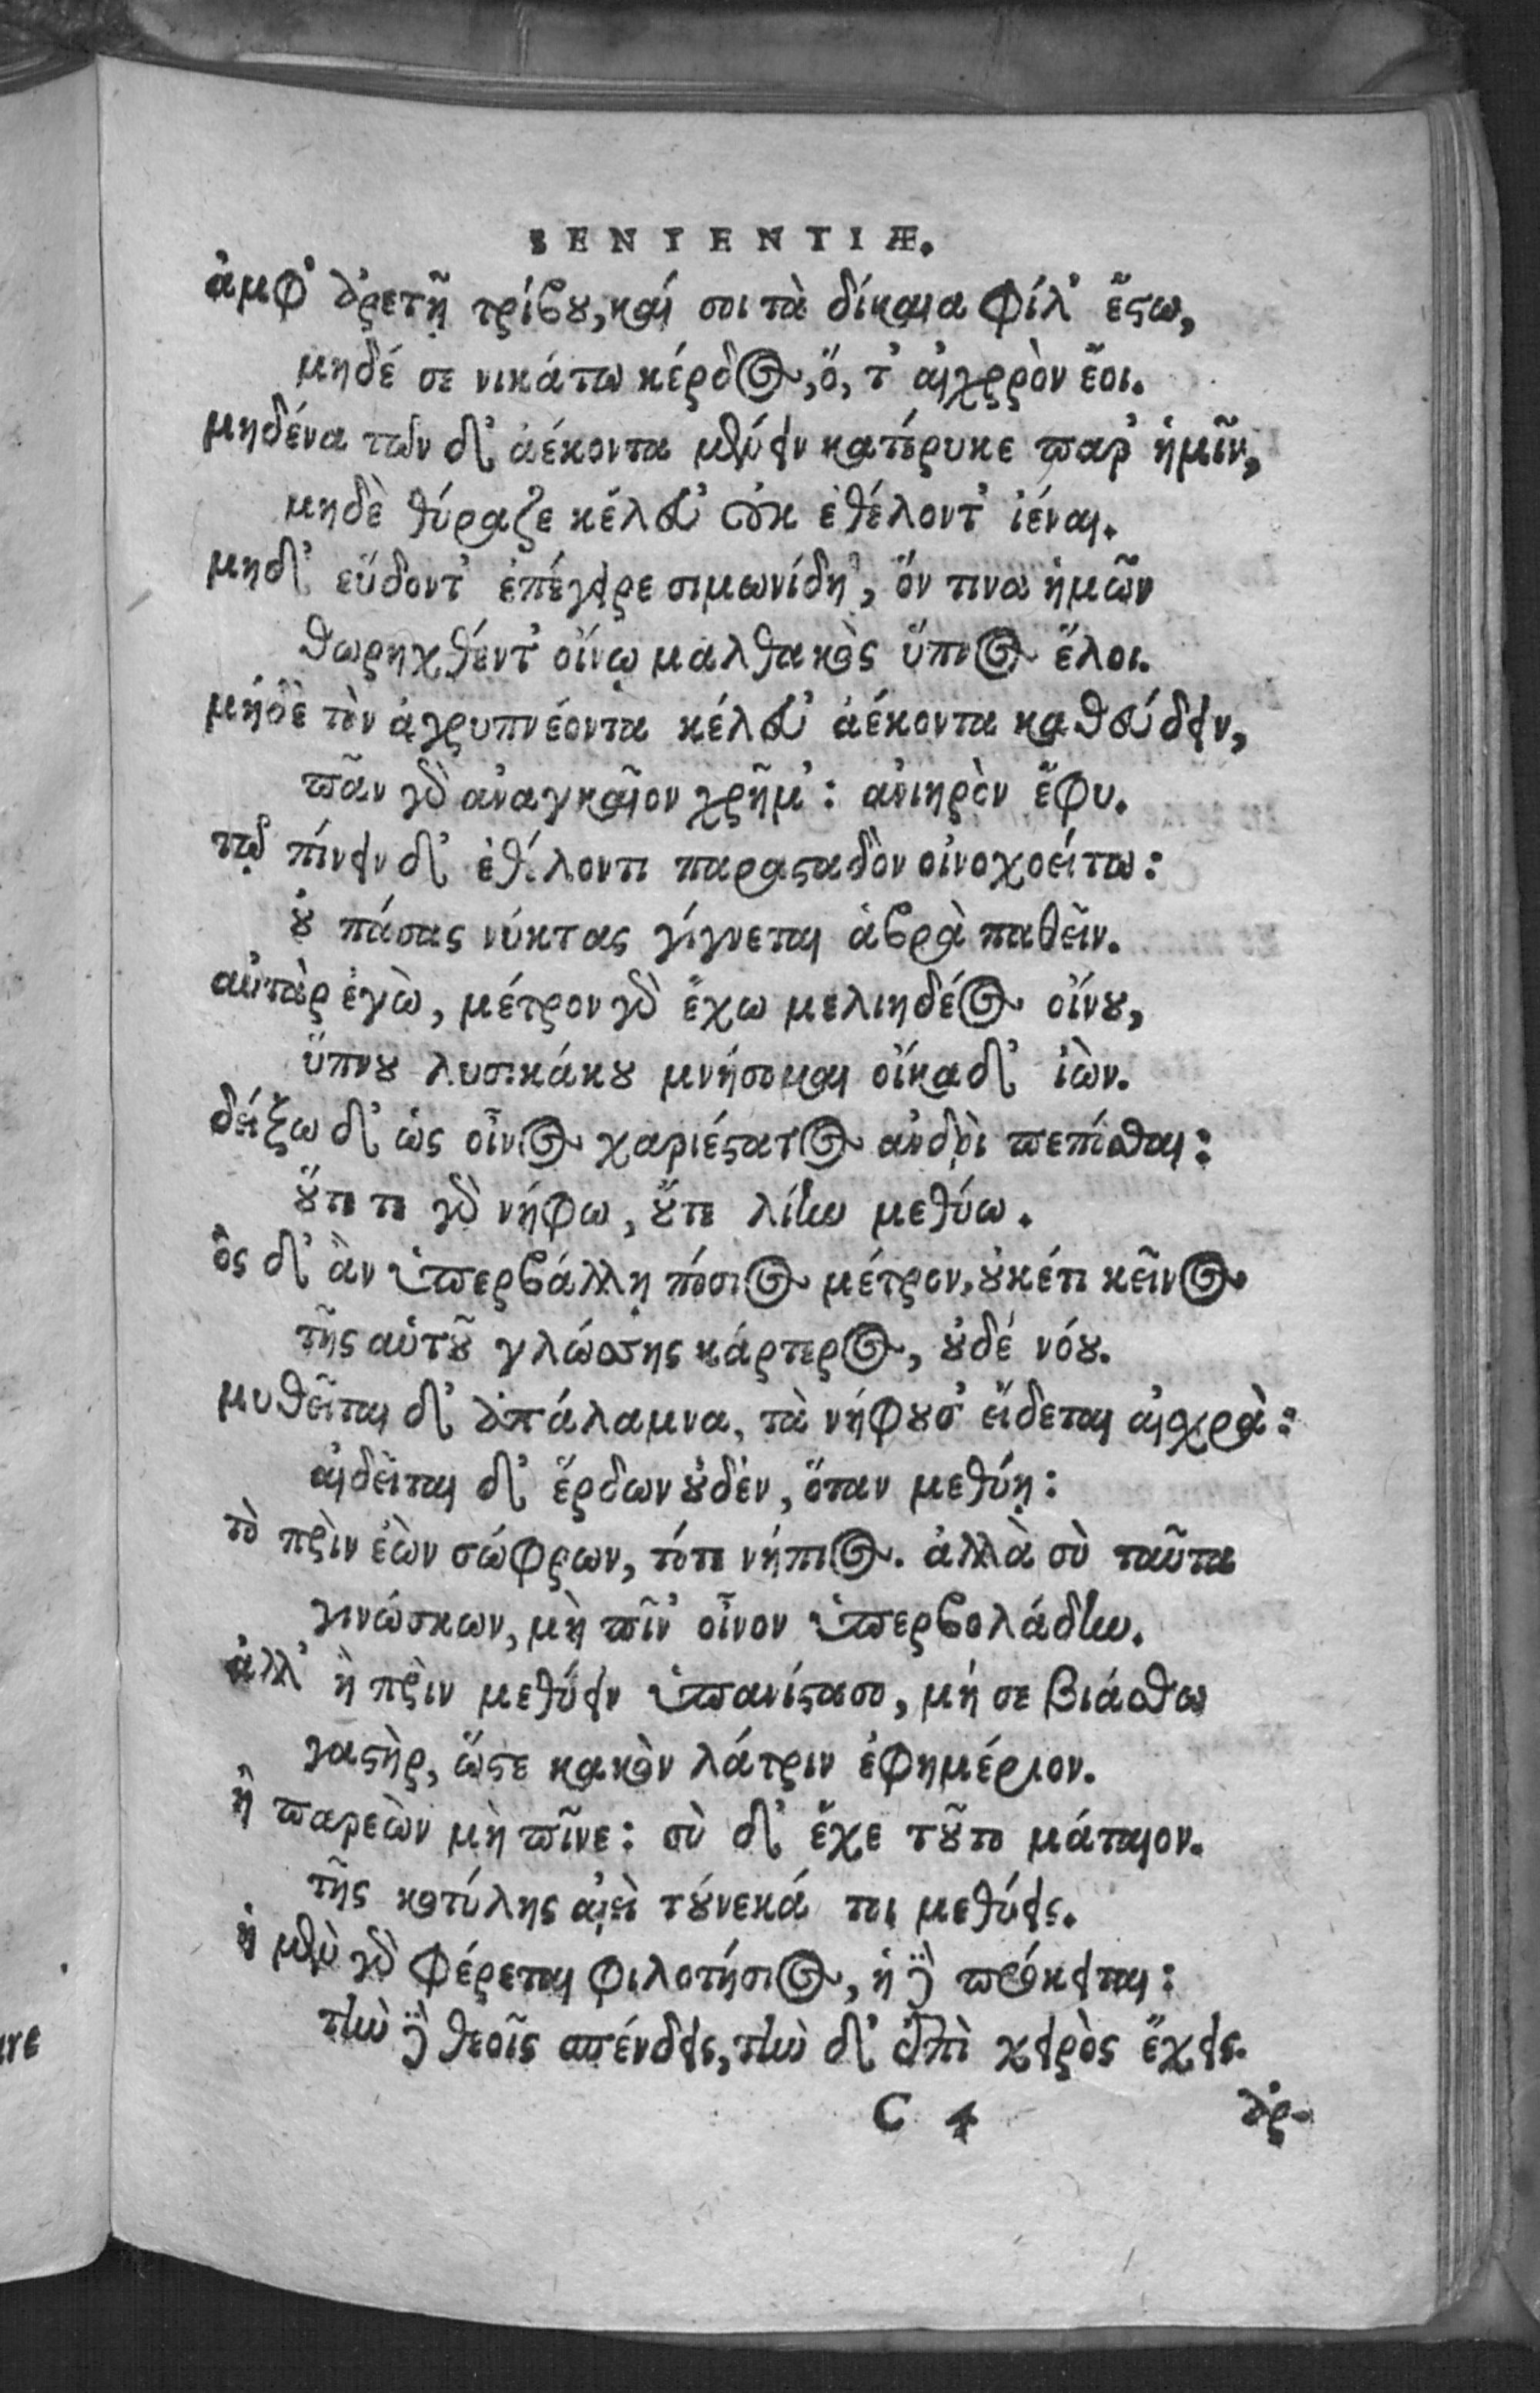 SENTENTIÆ.
ἀμφ' ἀρετῇ τρίβου, καί σοι τὰ δίκαια φίλ' ἔστω,
μηδέ σε νικάτω κέρδος, ὅ, τ' αἰχρὸν ἔοι.
μηδένα τῶν δ' ἀέκοντα μένειν κατέρυκε παρ' ἡμῖν,
μηδὲ θύραζε κέλευ' οὐκ ἐθέλοντ' ἰέναι.
μηδ' εὕδοντ' ἐπέγειρε σιμωνίδη, ὅν τινα ἡμῶν
θωρηχθέντ' οἴνῳ μαλθακὸς ὕπνος ἕλοι.
μήδὲ τὸν ἀγρυπνέοντα κέλευ' ἀέκοντα καθεύδειν,
πᾶν γὰρ ἀναγκαῖον χρῆμ': ἀνιηρὸν ἔφυ.
τῷ πίνειν δ' ἐθέλοντι παρασταδὸν οἰνοχοείτω:
οὐ πάσας νύκτας γίγνεται ἁβρὰ παθεῖν.
αὐτὰρ ἐγὼ, μέτρον γὰρ ἔχω μελιηδέος οἴνου,
ὕπνου λυσικάκου μνήσομαι οἴκαδ' ἰὼν.
δείξω δ' ὡς οἶνος χαριέστατος ἀνδρὶ πεπόσθαι:
οὔτε τι γὰρ νήφω, οὔτε λίην μεθύω.
ὃς δ' ἂν ὑπερβάλλῃ πόσιος μέτρον, οὐκέτι κεῖνος
τῆς αὑτοῦ γλώσσης κάρτερος, οὐδέ νόου.
μυθεῖται δ' ἀπάλαμνα, τὰ νήφουσ' εἴδεται αἰσχρὰ:
αἰδεῖται δ' ἕρδων οὐδὲν, ὅταν μεθύῃ:
τὸ πρὶν ἐὼν σώφρων, τότε νήπιος. ἀλλὰ σὺ ταῦτα
γινώσκων, μὴ πῖν' οἶνον ὑπερβολάδην.
ἀλλ' ἢ πρὶν μεθύειν ὑπανίστασο, μή σε βιάσθω
γαστὴρ, ὥστε κακὸν λάτριν ἐφημέριον.
ἢ παρεὼν μὴ πῖνε: σὺ δ' ἔχε τοῦτο μάταιον.
τῆς κοτύλης αἰεὶ τούνεκά τοι μεθύεις.
ἡ μὲν γὰρ φέρεται φιλοτήσιος, ἡ δὲ πρόκειται:
τὴν δὲ θεοῖς σπένδεις, τὴν δ' ἐπὶ χειρὸς ἔχεις.
C 4 ἀρ-